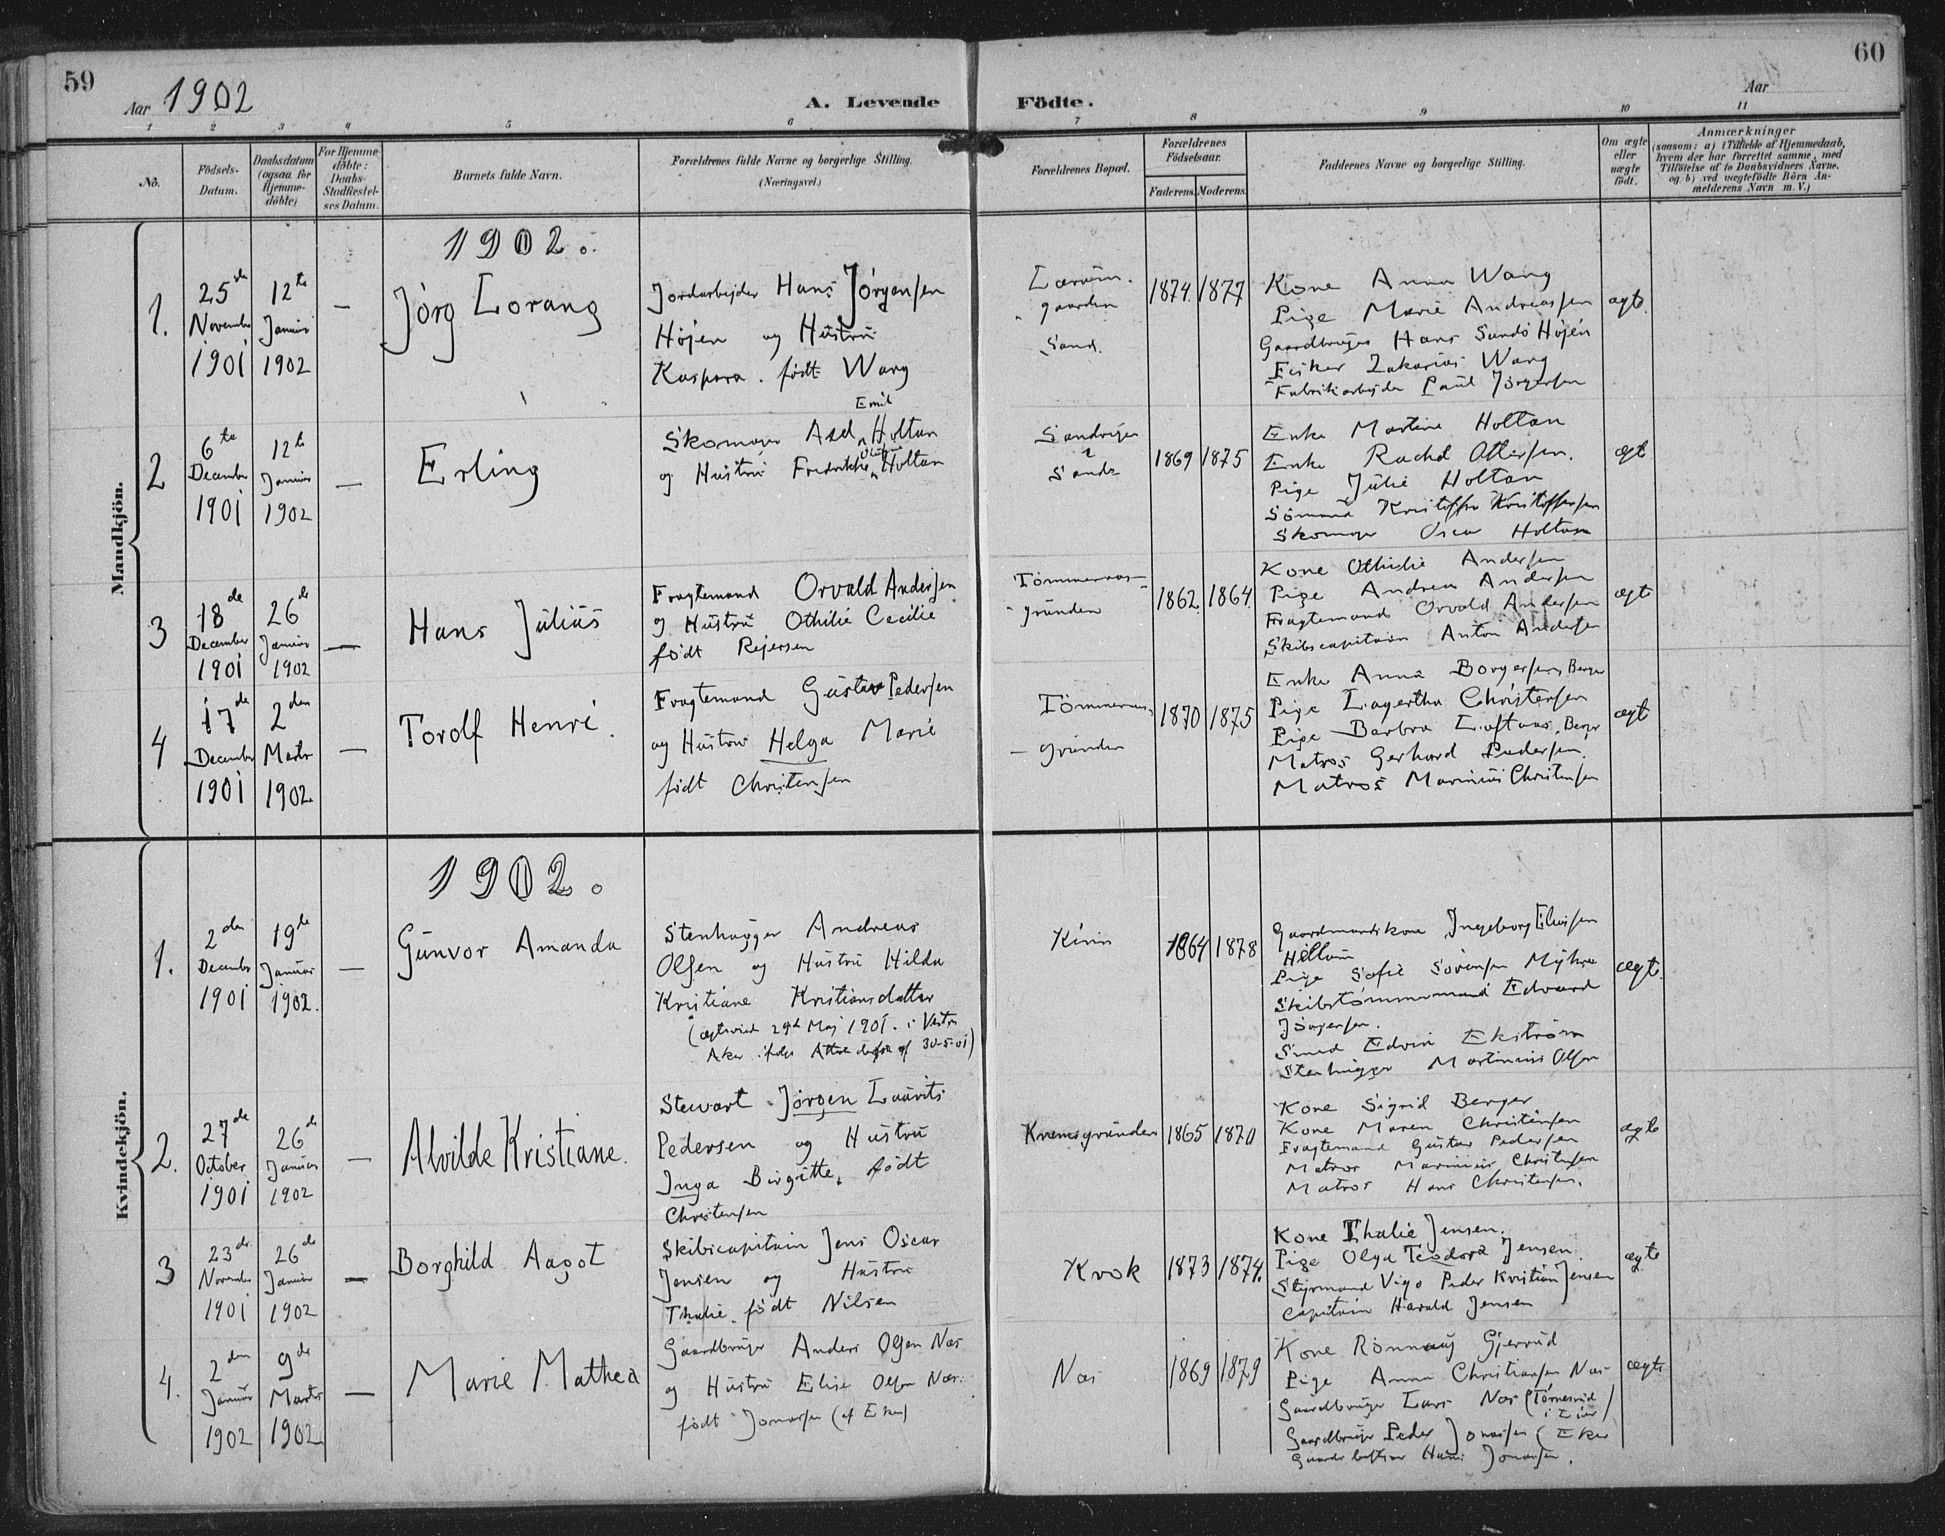 59
Aar 1902
A. Levende
Födte.
Aar
60
1 2 3 4 5 6 7 8 9 10 11
No.
Födsels-
Datum.
Daabsdatum
(ogsaa for
Hjemme-
döbte)
For Hjemme-
döbte:
Daabs-
Stadfæstel-
ses Datum.
Barnets fulde Navn.
Forældrenes fulde Navne og borgerlige Stilling.
(Næringsvei.)
Forældrenes Bopæl.
Forældrenes
Födselsaar.
Faderens. Moderens.
Faddernes Navne og borgerlige Stilling.
Om ægte
eller
uægte
födt.
Anmærkninger
(saasom: a) i Tilfælde af Hjemmedaab,
hvem der har forrettet samme, med
Tilföielse af to Daabsvidners Navne.
og b) ved uægtefödte Börn An-
melderens Navn m. V.)
Mandkjön.
1902.
1.
25de
November
1901
12te
Januar
1902
—
Jörg Lorang
Jordarbejder Hans Jörgensen
Höjen og Hustru
Kaspara. födt Wang
gaarden
Sand.
1874. 1877
Kone Anna Wang
Pige Marie Andreassen
Gaardbruger Hans Sandö Höjen
Fisker Zakarias Wang
Fabrikarbejder Paul Jörgensen
ægte.
2
6te
December
1901
12te
Januar
1902
—
Erling
Emil
Skomager Axel Holtan
og Hustru Fredrikke Holtan
1869 1875
Enke Martine Holtan
Enke Rachel Ottersen.
Pige Julie Holtan
Sömand Kristoffer Kristoffersen
Skomager Oscar Holtan
ægte
3
18de
December
1901
26de
Januar
1902
—
Hans Julius
Fragtemand Orvald Andersen
og Hustru Othilie Cecilie
födt Rejersen
Tömmeraas-
grunden
1862. 1864.
Kone Othilie Andersen
Pige Andrea Andersen
Fragtemand Orvald Andersen
Skibscapitain Anton Andersen
ægte
4
17de
December
1901
2den
Marts
1902
—
Torolf Henri.
Fragtemand Gustav Pedersen
og Hustru Helga Marie
födt Christensen
Tömmeraas-
grunden
1870 1875
Enke Anna Borgersen, Berger
Pige Lagertha Christensen
Pige Barbra Loftaas, Berger
Matros Gerhard Pedersen.
Matros Marinius Christensen
ægte
Kvindekjön.
1902.
1.
2den
December
1901
19de
Januar
1902.
—
Gunvor Amanda
Stenhugger Andreas
Olsen og Hustru Hilda
Kristiane Kristiansdatter
(ægteviet 29de Maj 1901. i Vestre
Aker ifölge Attest derfra af 30-5-01)
1864 1878
Gaardmandskone Ingeborg Eliassen
Hellum
Pige Sofie Sörensen Myhre
Skibstömmermand Edvard
Jörgensen.
Smed Edvin Ekström
Stenhugger Martinius Olsen
ægte.
2.
27de
October
1901
26de
Januar
1902
—
Alvilde Kristiane.
Stewart Jörgen Lauritz
Pedersen og Hustru
Inga Birgitte, födt
Christensen
1865 1870
Kone Sigrid Berger
Kone Maren Christensen
Fragtemand Gustav Pedersen
Matros Marinius Christensen
Matros Hans Christensen.
ægte
3
23de
November
1901
26de
Januar
1902
—
Borghild Aagot
Skibscapitain Jens Oscar
Jensen og Hustru
Thalie. födt Nilsen
Krok
1873 1874.
Kone Thalie Jensen.
Pige Olga Teodora Jensen.
Styrmand Vigo Peder Kristian Jensen
Capitain Harald Jensen
ægte
4.
2den
Januar
1902
9de
Marts
1902
—
Marie Mathea
Gaardbruger Anders Olsen Næs
og Hustru Elise Olsen Næs.
födt Jonassen (af Eker)
Næs
1869 1879
Kone Rönnaug Gjerrud
Pige Anna Christiansen Næs
Gaardbruger Lars Næs
Gaardbruger Peder Jonassen (Eker
Hans Jonassen.
ægte